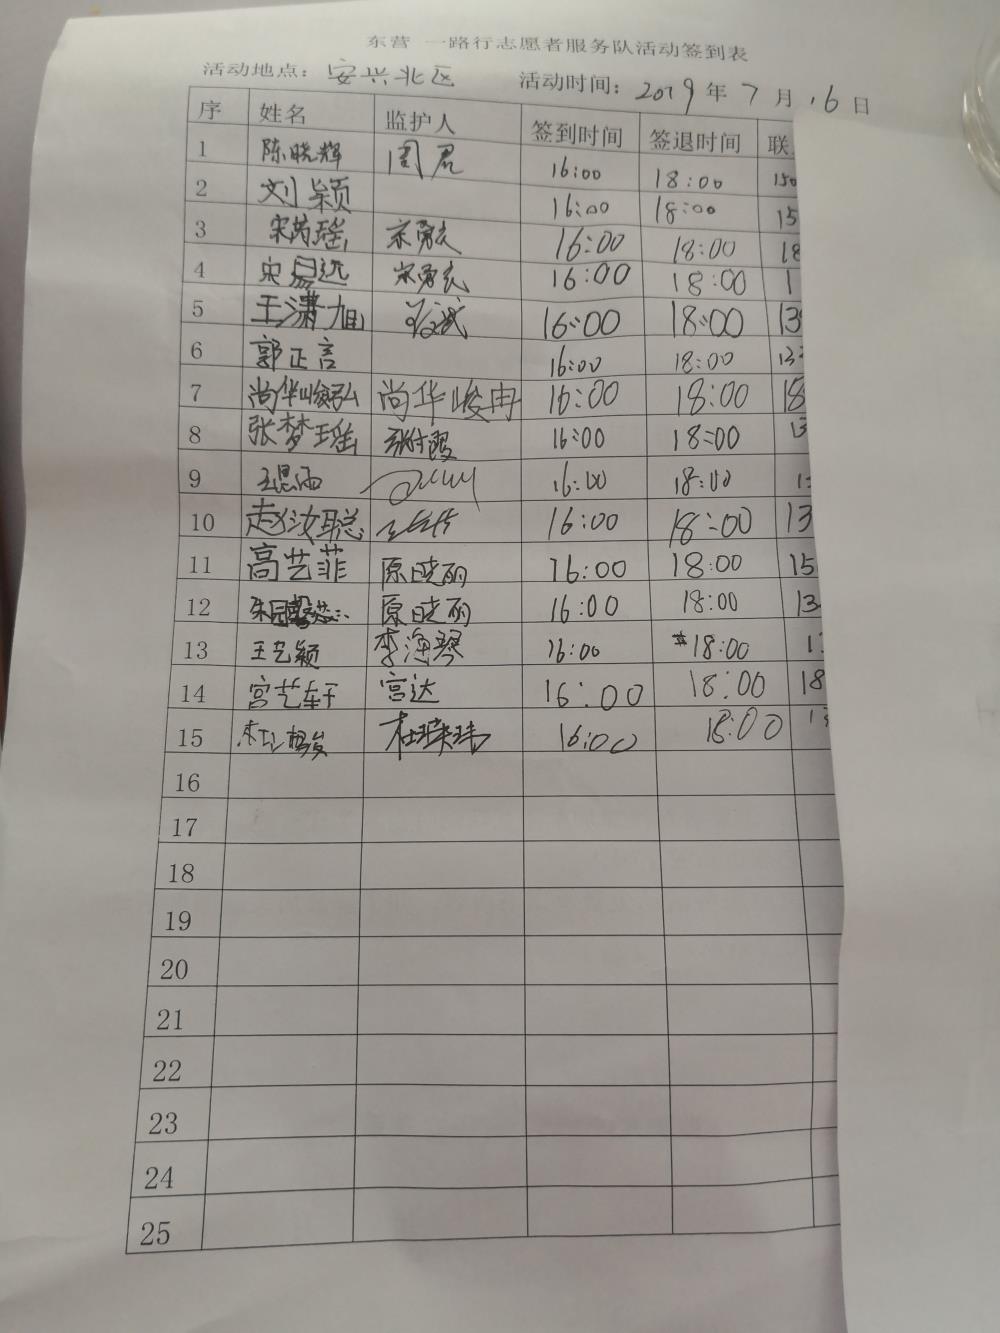 东营 一路行志愿者服务队活动签到表
活动地点：安兴北区 活动时间：2019年7月16日
序 姓名 监护人 签到时间 签退时间 联
1 陈晓辉 周君 16:00 18:00 150
2 刘颖 16:00 18:00 15
3 宋芮瑶 宋勇 16:00 18:00 18
4 宋易远 宋勇 16:00 18:00 1
5 王潇旭 16:00 18:00 13
6 郭正言 16:00 18:00 13
7 尚华峻弘 尚华峻冉 16:00 18:00 18
8 张梦瑶 张霞 16:00 18:00 13
9 16:00 18:00 1
10 赵汝聪 16:00 18:00 13
11 高艺菲 原晓丽 16:00 18:00 15
12 原晓丽 16:00 18:00 13
13 王艺颖 李海琴 16:00 18:00 1
14 宫艺轩 宫达 16:00 18:00 18
15 16:00 18:00
16
17
18
19
20
21
22
23
24
25